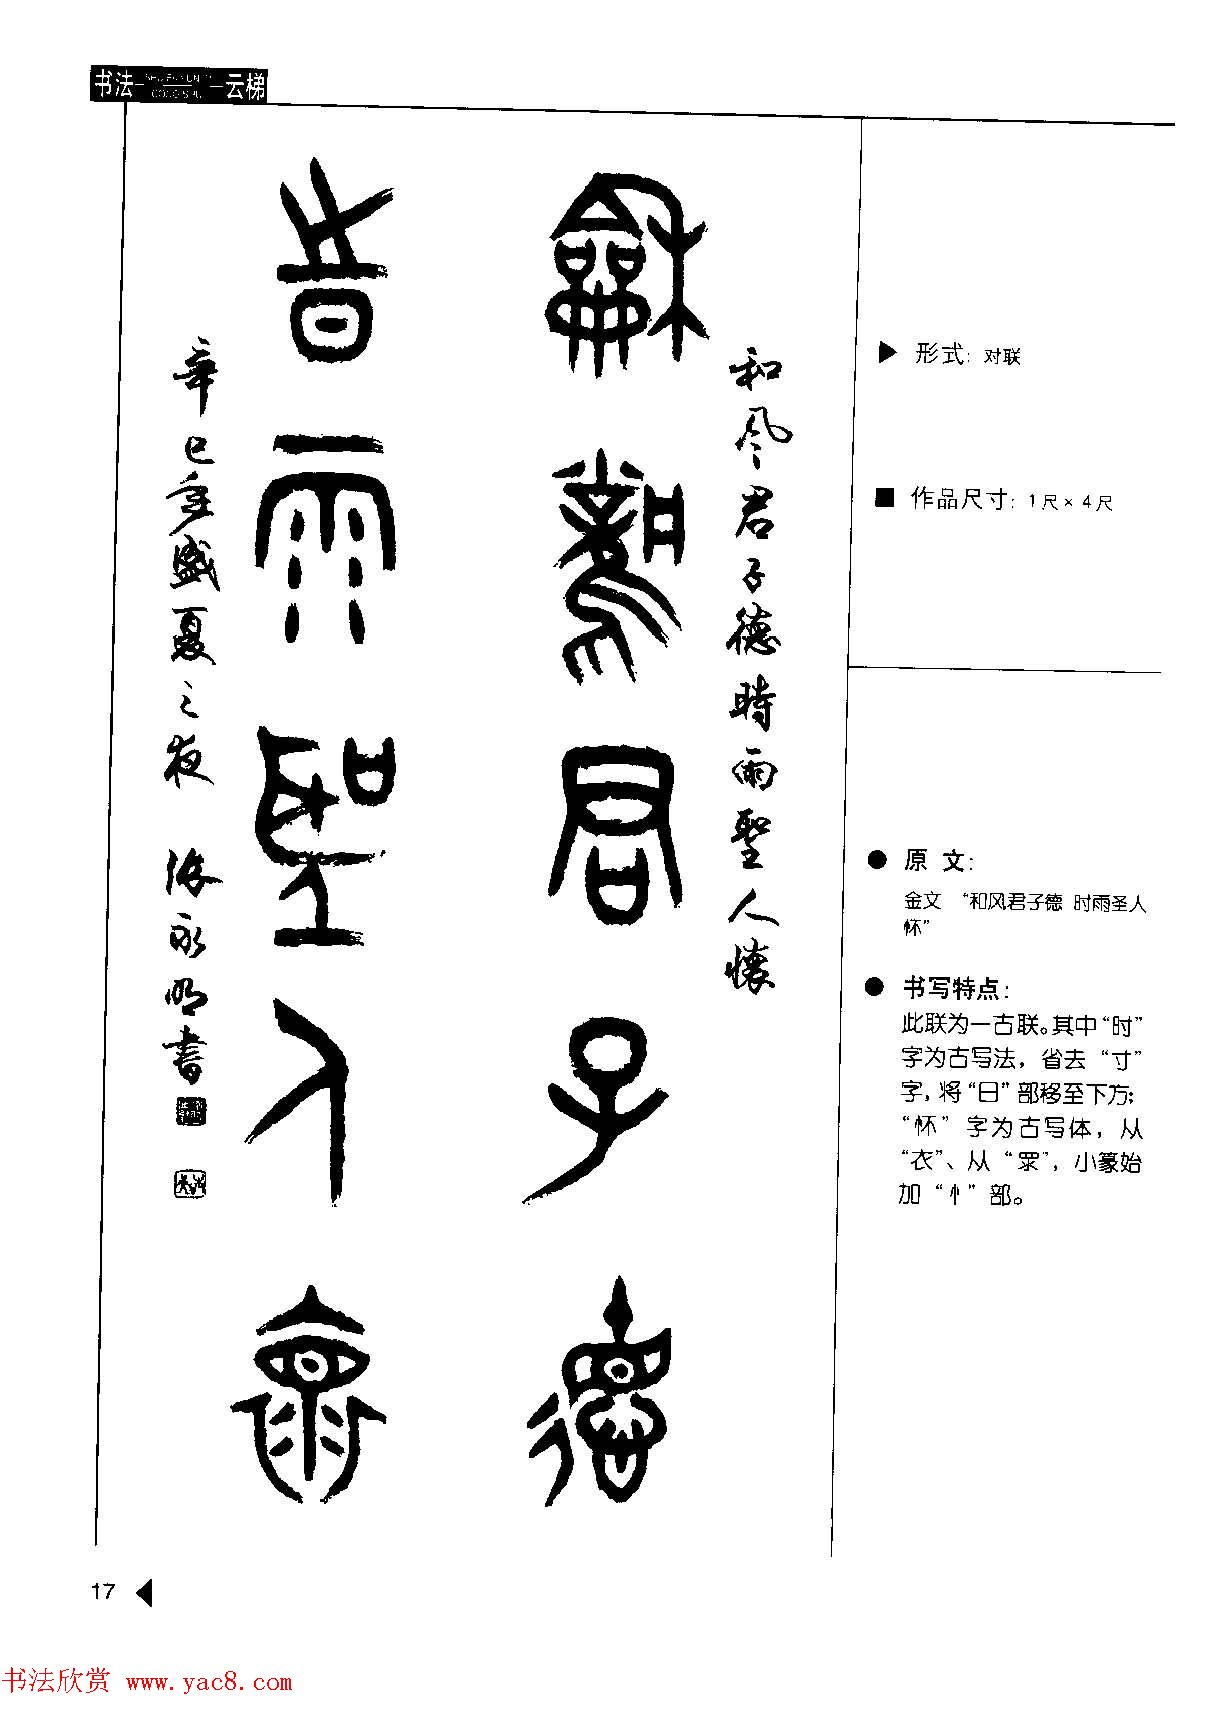 书法 云梯
和风君子德
時雨聖人懷
和风君子德時雨聖人懷
辛巳年盛夏之夜 永明書
形式：对联
作品尺寸：1尺×4尺
原 文：
金文 “和风君子德 时雨圣人
怀”
书写特点：
此联为一古联。其中“时”
字为古写法，省去“寸”
字，将“日”部移至下方；
“怀”字为古写体，从
“衣”、从“眔”，小篆始
加“忄”部。
17
书法欣赏 www.yac8.com